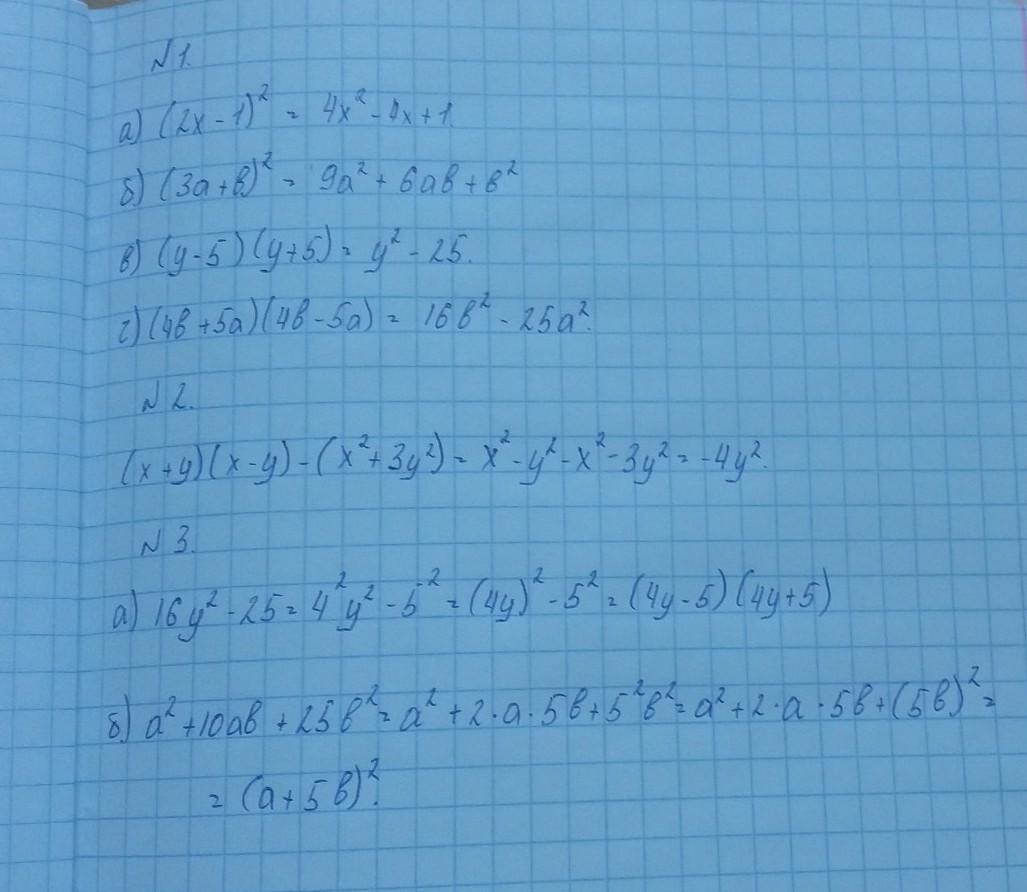 N 1.
а) (2x - 1)² = 4x² - 4x + 1
б) (3a + b)² = 9a² + 6ab + b²
в) (y - 5)(y + 5) = y² - 25.
г) (4b + 5a)(4b - 5a) = 16b² - 25a².
N 2.
(x + y)(x - y) - (x² + 3y²) = x² - y² - x² - 3y² = -4y².
N 3.
а) 16y² - 25 = 4²y² - 5² = (4y)² - 5² = (4y - 5)(4y + 5)
б) a² + 10ab + 25b² = a² + 2·a·5b + 5²b² = a² + 2·a·5b + (5b)² =
= (a + 5b)².